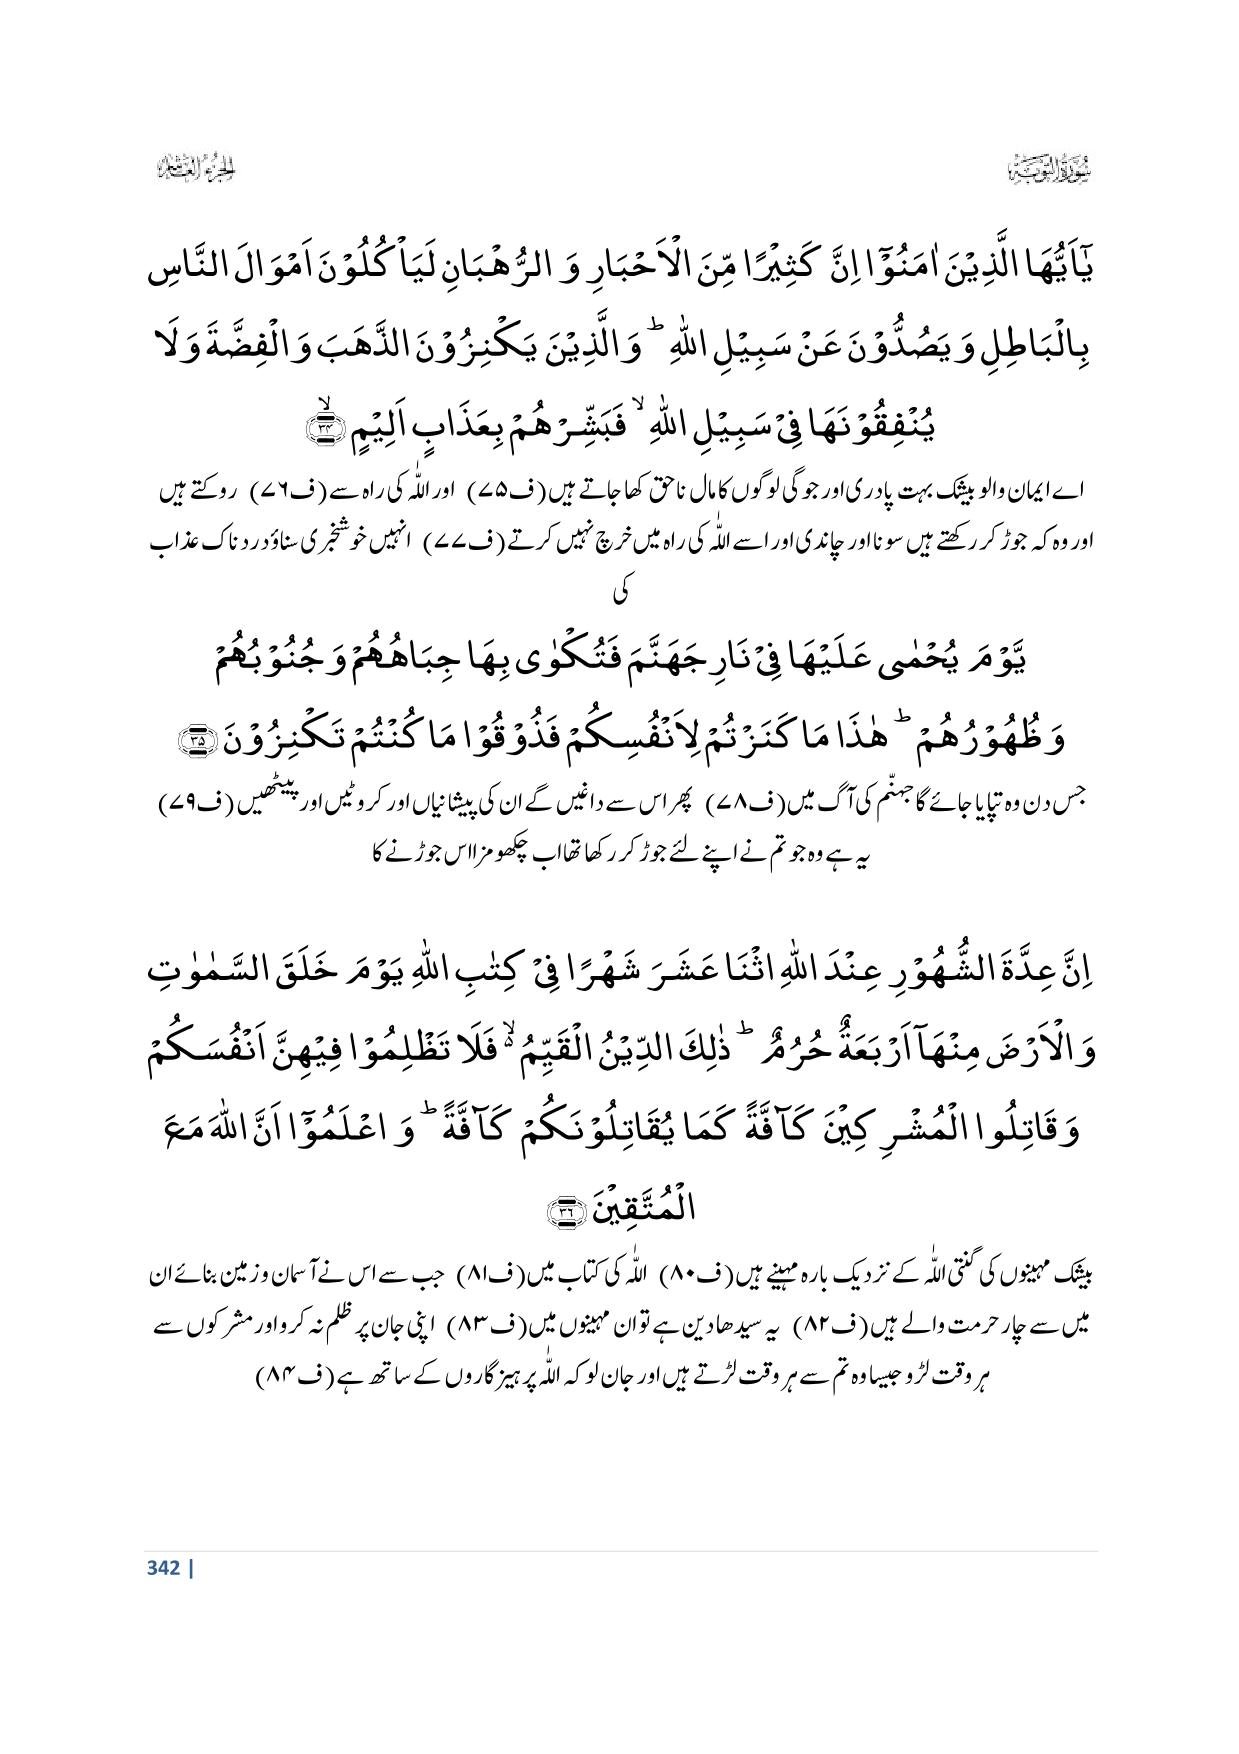 سُوْرَةُ التَّوْبَةِ
الجزء العاشر
يٰۤاَيُّهَا الَّذِيْنَ اٰمَنُوْۤا اِنَّ كَثِيْرًا مِّنَ الْاَحْبَارِ وَ الرُّهْبَانِ لَيَاْكُلُوْنَ اَمْوَالَ النَّاسِ
بِالْبَاطِلِ وَ يَصُدُّوْنَ عَنْ سَبِيْلِ اللّٰهِ ؕ وَ الَّذِيْنَ يَكْنِزُوْنَ الذَّهَبَ وَ الْفِضَّةَ وَ لَا
يُنْفِقُوْنَهَا فِيْ سَبِيْلِ اللّٰهِ ۙ فَبَشِّرْهُمْ بِعَذَابٍ اَلِيْمٍ ۙ﴿۳۴﴾
اے ایمان والو بیشک بہت پادری اور جوگی لوگوں کا مال ناحق کھا جاتے ہیں (ف۷۵) اور اللّٰہ کی راہ سے (ف۷۶) روکتے ہیں
اور وہ کہ جوڑ کر رکھتے ہیں سونا اور چاندی اور اسے اللّٰہ کی راہ میں خرچ نہیں کرتے (ف۷۷) انہیں خوشخبری سناؤ دردناک عذاب
کی
يَّوْمَ يُحْمٰى عَلَيْهَا فِيْ نَارِ جَهَنَّمَ فَتُكْوٰى بِهَا جِبَاهُهُمْ وَ جُنُوْبُهُمْ
وَ ظُهُوْرُهُمْ ؕ هٰذَا مَا كَنَزْتُمْ لِاَنْفُسِكُمْ فَذُوْقُوْا مَا كُنْتُمْ تَكْنِزُوْنَ ﴿۳۵﴾
جس دن وہ تپایا جائے گا جہنّم کی آگ میں (ف۷۸) پھر اس سے داغیں گے ان کی پیشانیاں اور کروٹیں اور پیٹھیں (ف۷۹)
یہ ہے وہ جو تم نے اپنے لئے جوڑ کر رکھا تھا اب چکھو مزا اس جوڑنے کا
اِنَّ عِدَّةَ الشُّهُوْرِ عِنْدَ اللّٰهِ اثْنَا عَشَرَ شَهْرًا فِيْ كِتٰبِ اللّٰهِ يَوْمَ خَلَقَ السَّمٰوٰتِ
وَ الْاَرْضَ مِنْهَاۤ اَرْبَعَةٌ حُرُمٌ ؕ ذٰلِكَ الدِّيْنُ الْقَيِّمُ ۙ۬ فَلَا تَظْلِمُوْا فِيْهِنَّ اَنْفُسَكُمْ
وَ قَاتِلُوا الْمُشْرِكِيْنَ كَآفَّةً كَمَا يُقَاتِلُوْنَكُمْ كَآفَّةً ؕ وَ اعْلَمُوْۤا اَنَّ اللّٰهَ مَعَ
الْمُتَّقِيْنَ ﴿۳۶﴾
بیشک مہینوں کی گنتی اللّٰہ کے نزدیک بارہ مہینے ہیں (ف۸۰) اللّٰہ کی کتاب میں (ف۸۱) جب سے اس نے آسمان و زمین بنائے ان
میں سے چار حرمت والے ہیں (ف۸۲) یہ سیدھا دین ہے تو ان مہینوں میں (ف۸۳) اپنی جان پر ظلم نہ کرو اور مشرکوں سے
ہر وقت لڑو جیسا وہ تم سے ہر وقت لڑتے ہیں اور جان لو کہ اللّٰہ پرہیزگاروں کے ساتھ ہے (ف۸۴)
342 |